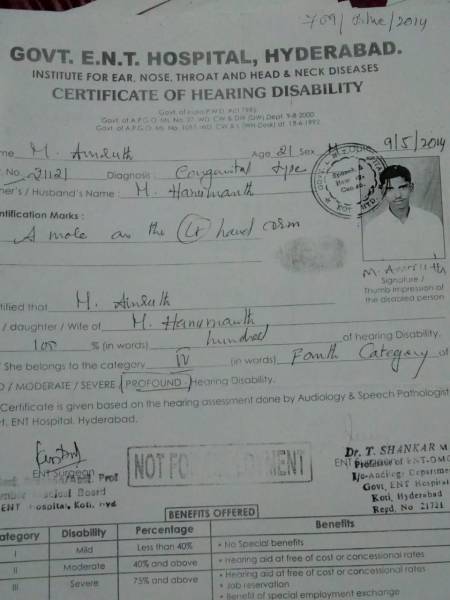 709/ /2014
GOVT. E.N.T. HOSPITAL, HYDERABAD.
INSTITUTE FOR EAR, NOSE, THROAT AND HEAD & NECK DISEASES
CERTIFICATE OF HEARING DISABILITY
Govt. of India P.W.D. Act 1995
Govt. of A.P.G.O. Ms. No. 31, WD, CW & DW (DW) Dept. 9-8-2000
Govt. of A.P.G.O. Ms. No. 109
me M. Age 21 Sex M 9/5/2014
No. 2112 Diagnosis : Congenital type
er's / Husband's Name : M. Hanumanth
ntification Marks :
A mole on the Lt hand
Signature /
Thumb Impression of
the disabled person
tified that M.
/ daughter / Wife of M. Hanumanth
100 % (in words) hundred of hearing Disability.
She belongs to the category IV (in words) Fourth Category of
D / MODERATE / SEVERE / PROFOUND - Hearing Disability.
Certificate is given based on the hearing assessment done by Audiology & Speech Pathologist
t. ENT Hospital. Hyderabad.
ENT Surgeon
Prof
Medical Board
ENT Hospital, Koti, Hyd
NOT FOR
Dr. T. SHANKAR M
Professor of ENT-
I/c-Audiology Department
Govt. ENT Hospital
Koti, Hyderabad
Regd. No 21721
BENEFITS OFFERED
ategory Disability Percentage Benefits
I Mild Less than 40% • No Special benefits
II Moderate 40% and above • Hearing aid at free of cost or concessional rates
III Severe 75% and above • Hearing aid at free of cost or concessional rates
• Job reservation
• Benefit of special employment exchange